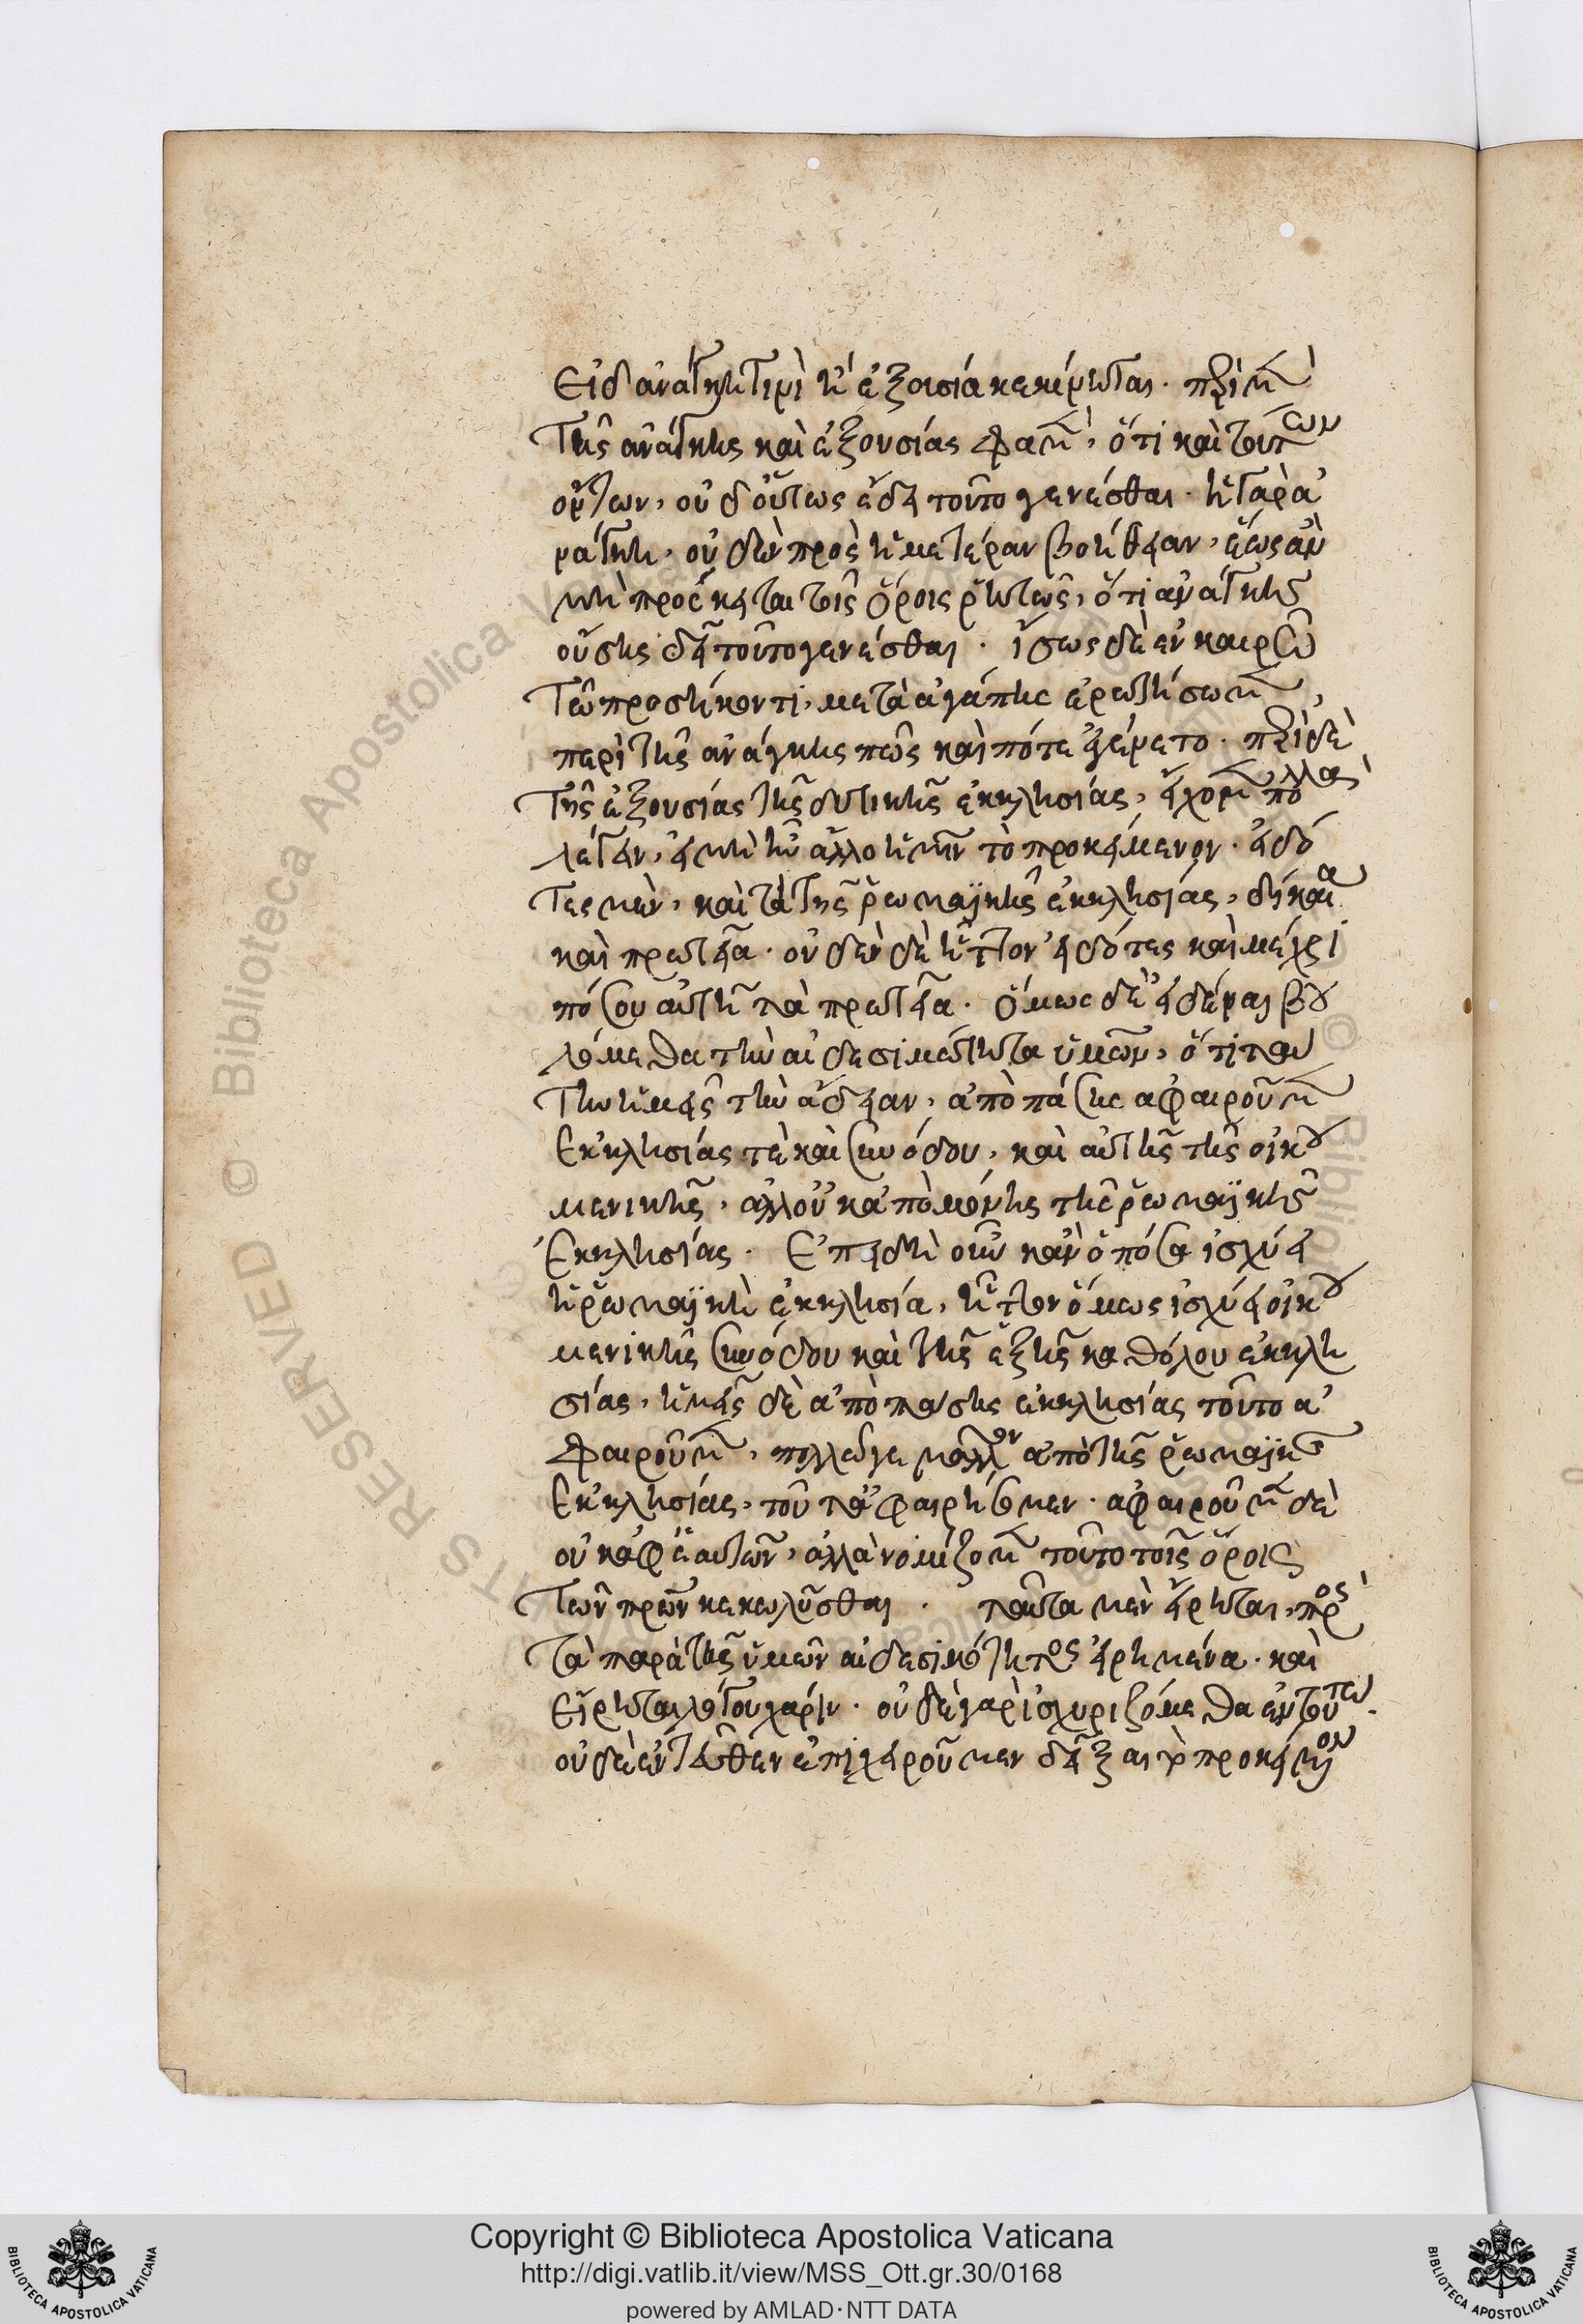 εἰ δ' ἀνάγκη τινὶ ἢ ἐξουσία κεκύρωται. περὶ μὲν
τῆς ἀνάγκης καὶ ἐξουσίας φαμὲν, ὅτι καὶ τούτων
οὕτως, οὐδ' οὕτως ἔδει τοῦτο γενέσθαι. ἡ γὰρ ἀ
νάγκη, οὐδὲν πρὸς ἡμετέραν βοήθειαν, ἕως ἂν
μὴ προσκῆται τοῖς ὅροις ῥητῶς, ὅτι ἀνάγκης
οὔσης δεῖ τοῦτο γενέσθαι. ἴσως δὲ ἐν καιρῷ
τῷ προσήκοντι, μετὰ ἀγάπης ἐρωτήσωμεν
περὶ τῆς ἀνάγκης πῶς καὶ πότε ἐγένετο. περὶ δὲ
τῆς ἐξουσίας τῆς δυτικῆς ἐκκλησίας, εἴχομεν πολλὰ
λέγειν, εἰ μὴ ἦν ἄλλο ἡμῖν τὸ προκείμενον. εἰδό
τες μὲν, καὶ τὰ τῆς ῥωμαϊκῆς ἐκκλησίας, δίκαια
καὶ πρωτεῖα. οὐδὲν δὲ ἧττον εἰδότες καὶ μέχρι
πόσου αὐτῇ τὰ πρωτεῖα. ὅμως δὲ εἰδέναι βου
λόμεθα τὴν αἰδεσιμότητα ὑμῶν, ὅτι ταύ
την ἡμεῖς τὴν ἄδειαν, ἀπὸ πάσης ἀφαιροῦμεν
ἐκκλησίας τὲ καὶ συνόδου, καὶ αὐτῆς τῆς οἰκου
μενικῆς, ἀλλ' οὐκ ἀπὸ μόνης τῆς ῥωμαϊκῆς
ἐκκλησίας. Ἐπειδὴ οὖν κἂν ὁπόσα ἰσχύει
ἡ ῥωμαϊκὴ ἐκκλησία, ἧττον ὅμως ἰσχύει οἰκου
μενικῆς συνόδου καὶ τῆς ἑξῆς καθόλου ἐκκλη
σίας, ἡμεῖς δὲ ἀπὸ πάσης ἐκκλησίας τοῦτο ἀ
φαιροῦμεν, πολλῷ γε μᾶλλον ἀπὸ τῆς ῥωμαϊκῆς
ἐκκλησίας, τοῦτ' ἀφαιρήσομεν. ἀφαιροῦμεν δὲ
οὐκ ἀφ' ἑαυτῶν, ἀλλὰ νομίζομεν τοῦτο τοῖς ὅροις
τῶν πατέρων κεκωλῦσθαι. ταῦτα μὲν εἴρηται, πρὸς
τὰ παρὰ τῆς ὑμῶν αἰδεσιμότητος εἰρημένα. καὶ
εἴρηται λόγου χάριν. οὐδὲ γὰρ ἰσχυριζόμεθα ἐν τούτῳ.
οὐδὲ ἐντεῦθεν ἐπιχειροῦμεν δεῖξαι τὸ προκείμενον